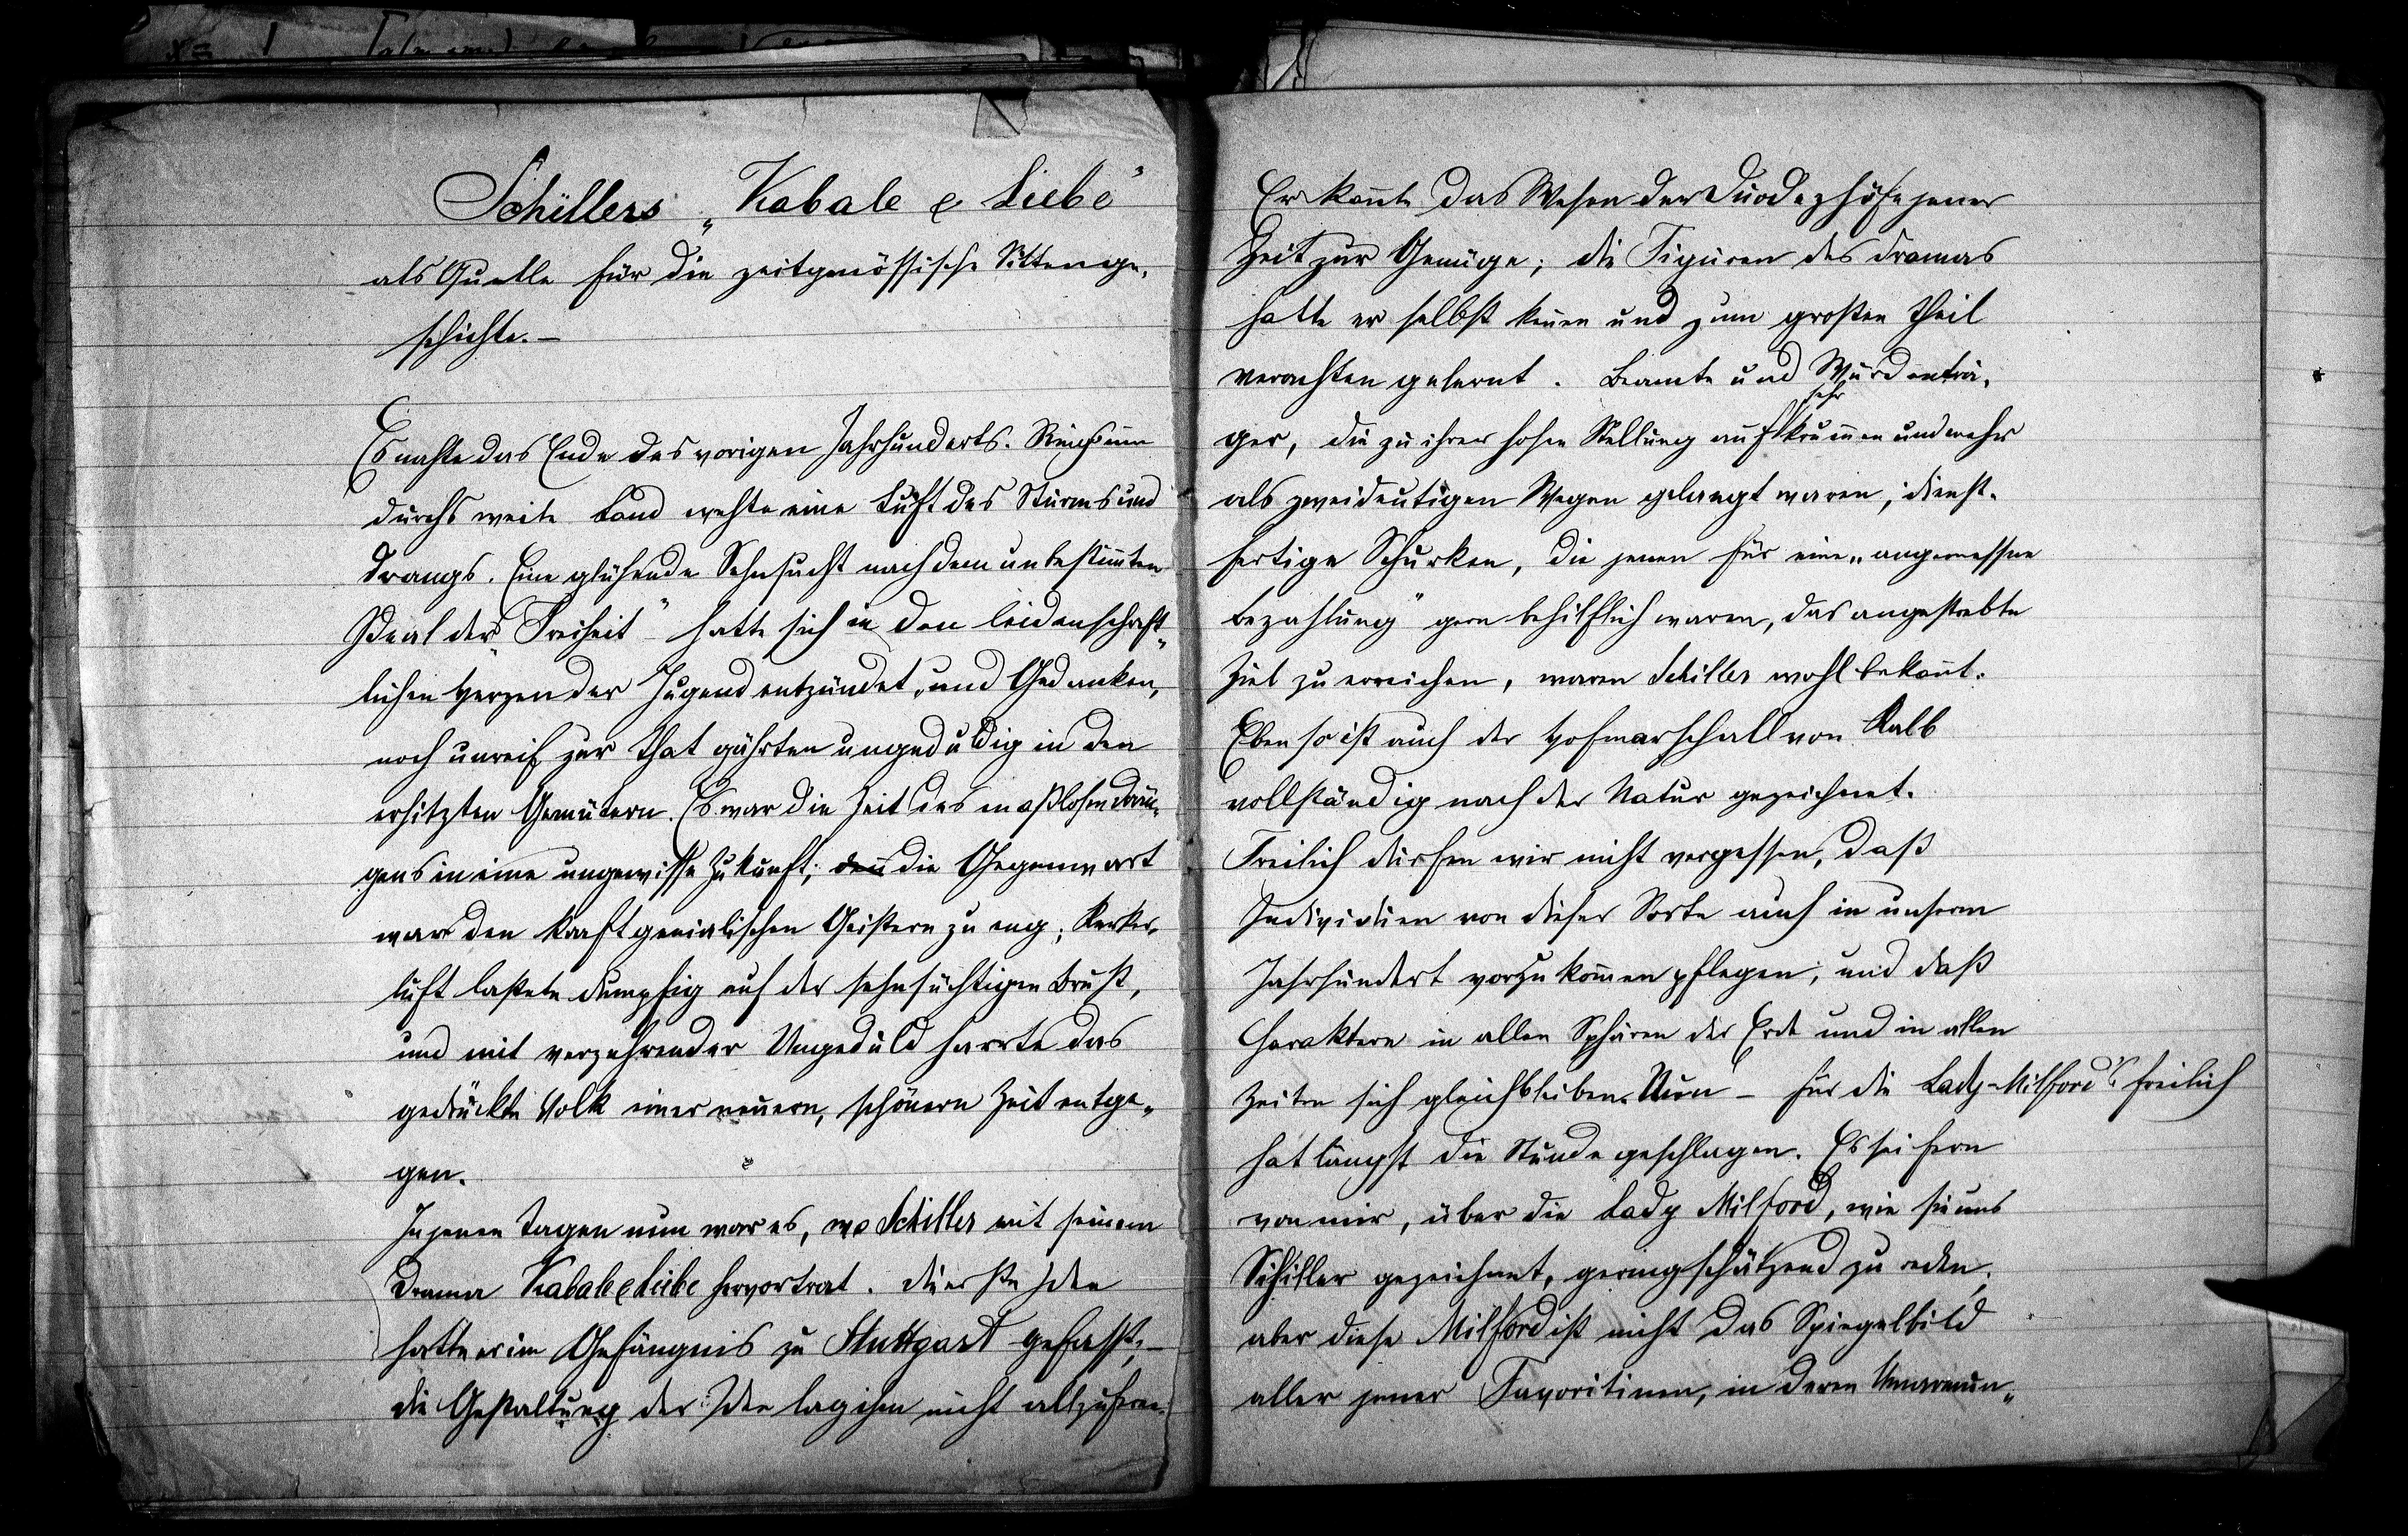 Schillers „Kabale & Liebe"
als Quelle für die zeitgenössische Sittenge-
schichte. —
Es nahte das Ende des vorigen Jahrhunderts. Rings um
durchs weite Land wehte eine Luft des Sturms und
Drangs. Eine glühende Sehnsucht nach dem unbestim̅ten
Ideal der „Freiheit" hatte sich in den leidenschaft-
lichen Herzen der Jugend entzündet, und Gedanken,
noch unreif zur That gährten ungeduldig in den
erhitzten Gemütern. Es war die Zeit des maßlosen Drän-
gens in eine ungewisse Zukunft; den̅ die Gegenwart
war den kraftgenialischen Geistern zu eng; Kerker-
luft lastete dumpfig auf der sehnsüchtigen Brust,
und mit verzehrender Ungeduld harrte das
gedrückte Volk einer neuern, schönern Zeit entge-
gen.
In jenen Tagen nun war es, wo Schiller mit seinem
Drama Kabale & Liebe hervortrat. Die erste Idee
hatte er im Gefängnis zu Stuttgart gefasst; –
die Gestaltung der Idee lag ihm nicht allzufern.
Er kan̅te das Wesen der Duodezhöfe jener
Zeit zur Genüge; die Figuren des Dramas
hatte er selbst ken̅en und zum großen Theil
verachten gelernt. Beamte und Würdenträ-
ger, die zu ihrer hohen Stellung auf sehr krum̅en und mehr
als zweideutigen Wegen gelangt waren; dienst-
fertige Schurken, die jenen für eine „angemessene
Bezahlung" gern behilflich waren, das angestrebte
Ziel zu erreichen, waren Schiller wohl bekan̅t.
Eben so ist auch der Hofmarschall von Kalb
vollständig nach der Natur gezeichnet.
Freilich dürfen wir nicht vergessen, daß
Individuen von dieser Sorte auch in unserm
Jahrhundert vorzukom̅en pflegen, und daß
Charaktere in allen Sphären der Erde und in allen
Zeiten sich gleichbleiben. Nun – für die Lady-Milford's freilich
hat längst die Stunde geschlagen. Es sei fern
von mir, über die Lady Milford, wie sie uns
Schiller gezeichnet, geringschätzend zu reden;
aber diese Milford ist nicht das Spiegelbild
aller jener Favoritinen, in deren Umarmun-